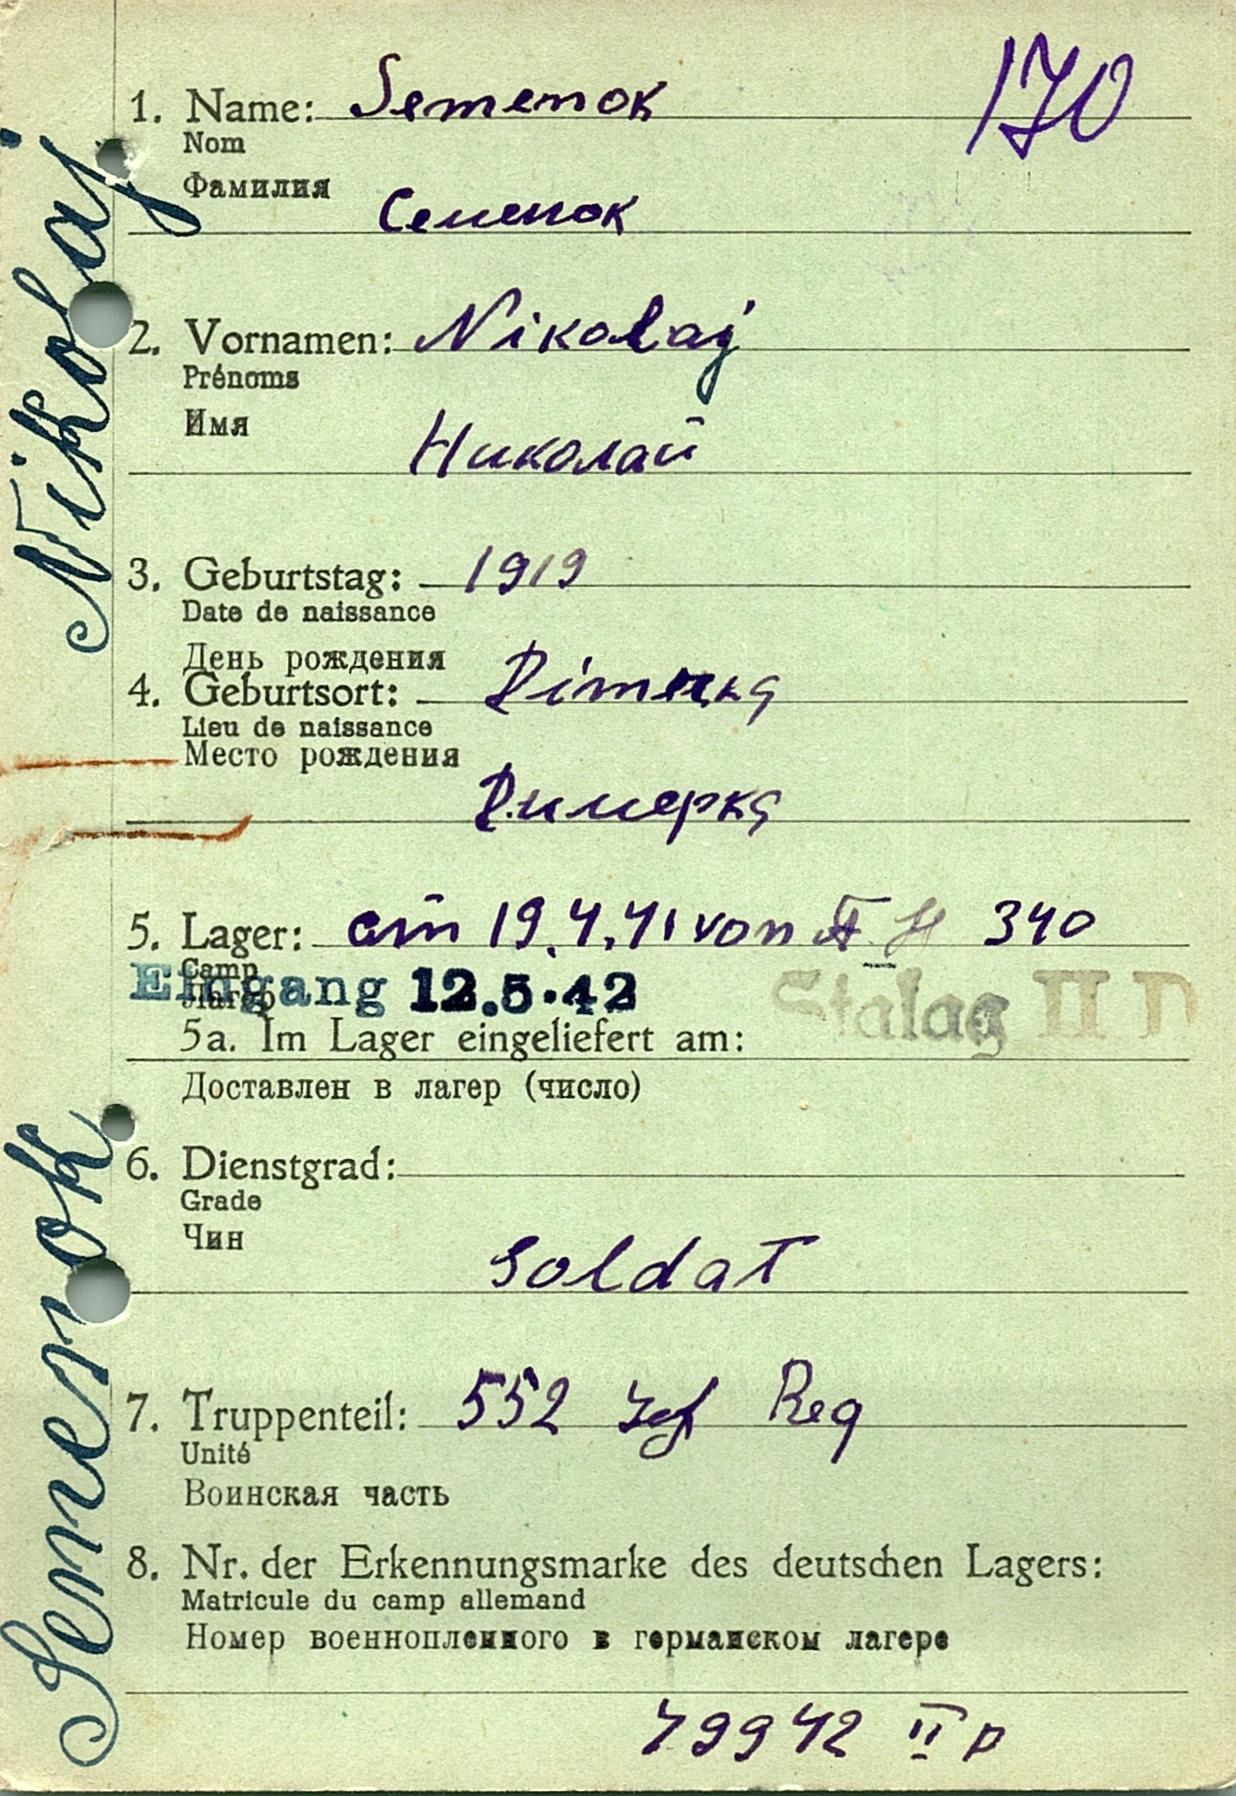 170
1. Name: Semenok
Nom
Фамилия
Семенок
2. Vornamen: Nikolaj
Prénoms
Имя
Николай
3. Geburtstag: 1919
Date de naissance
День рождения
4. Geburtsort:
Lieu de naissance
Место рождения
Димерка
5. Lager: am 19.4.41 von 340
Camp
Лагерь
Eingang 12.5.42
Stalag II D
5a. Im Lager eingeliefert am:
Доставлен в лагер (число)
6. Dienstgrad:
Grade
Чин
Soldat
7. Truppenteil: 552 Reg
Unité
Воинская часть
8. Nr. der Erkennungsmarke des deutschen Lagers:
Matricule du camp allemand
Номер военнопленного в германском лагере
79942 II D
Semenok Nikolaj